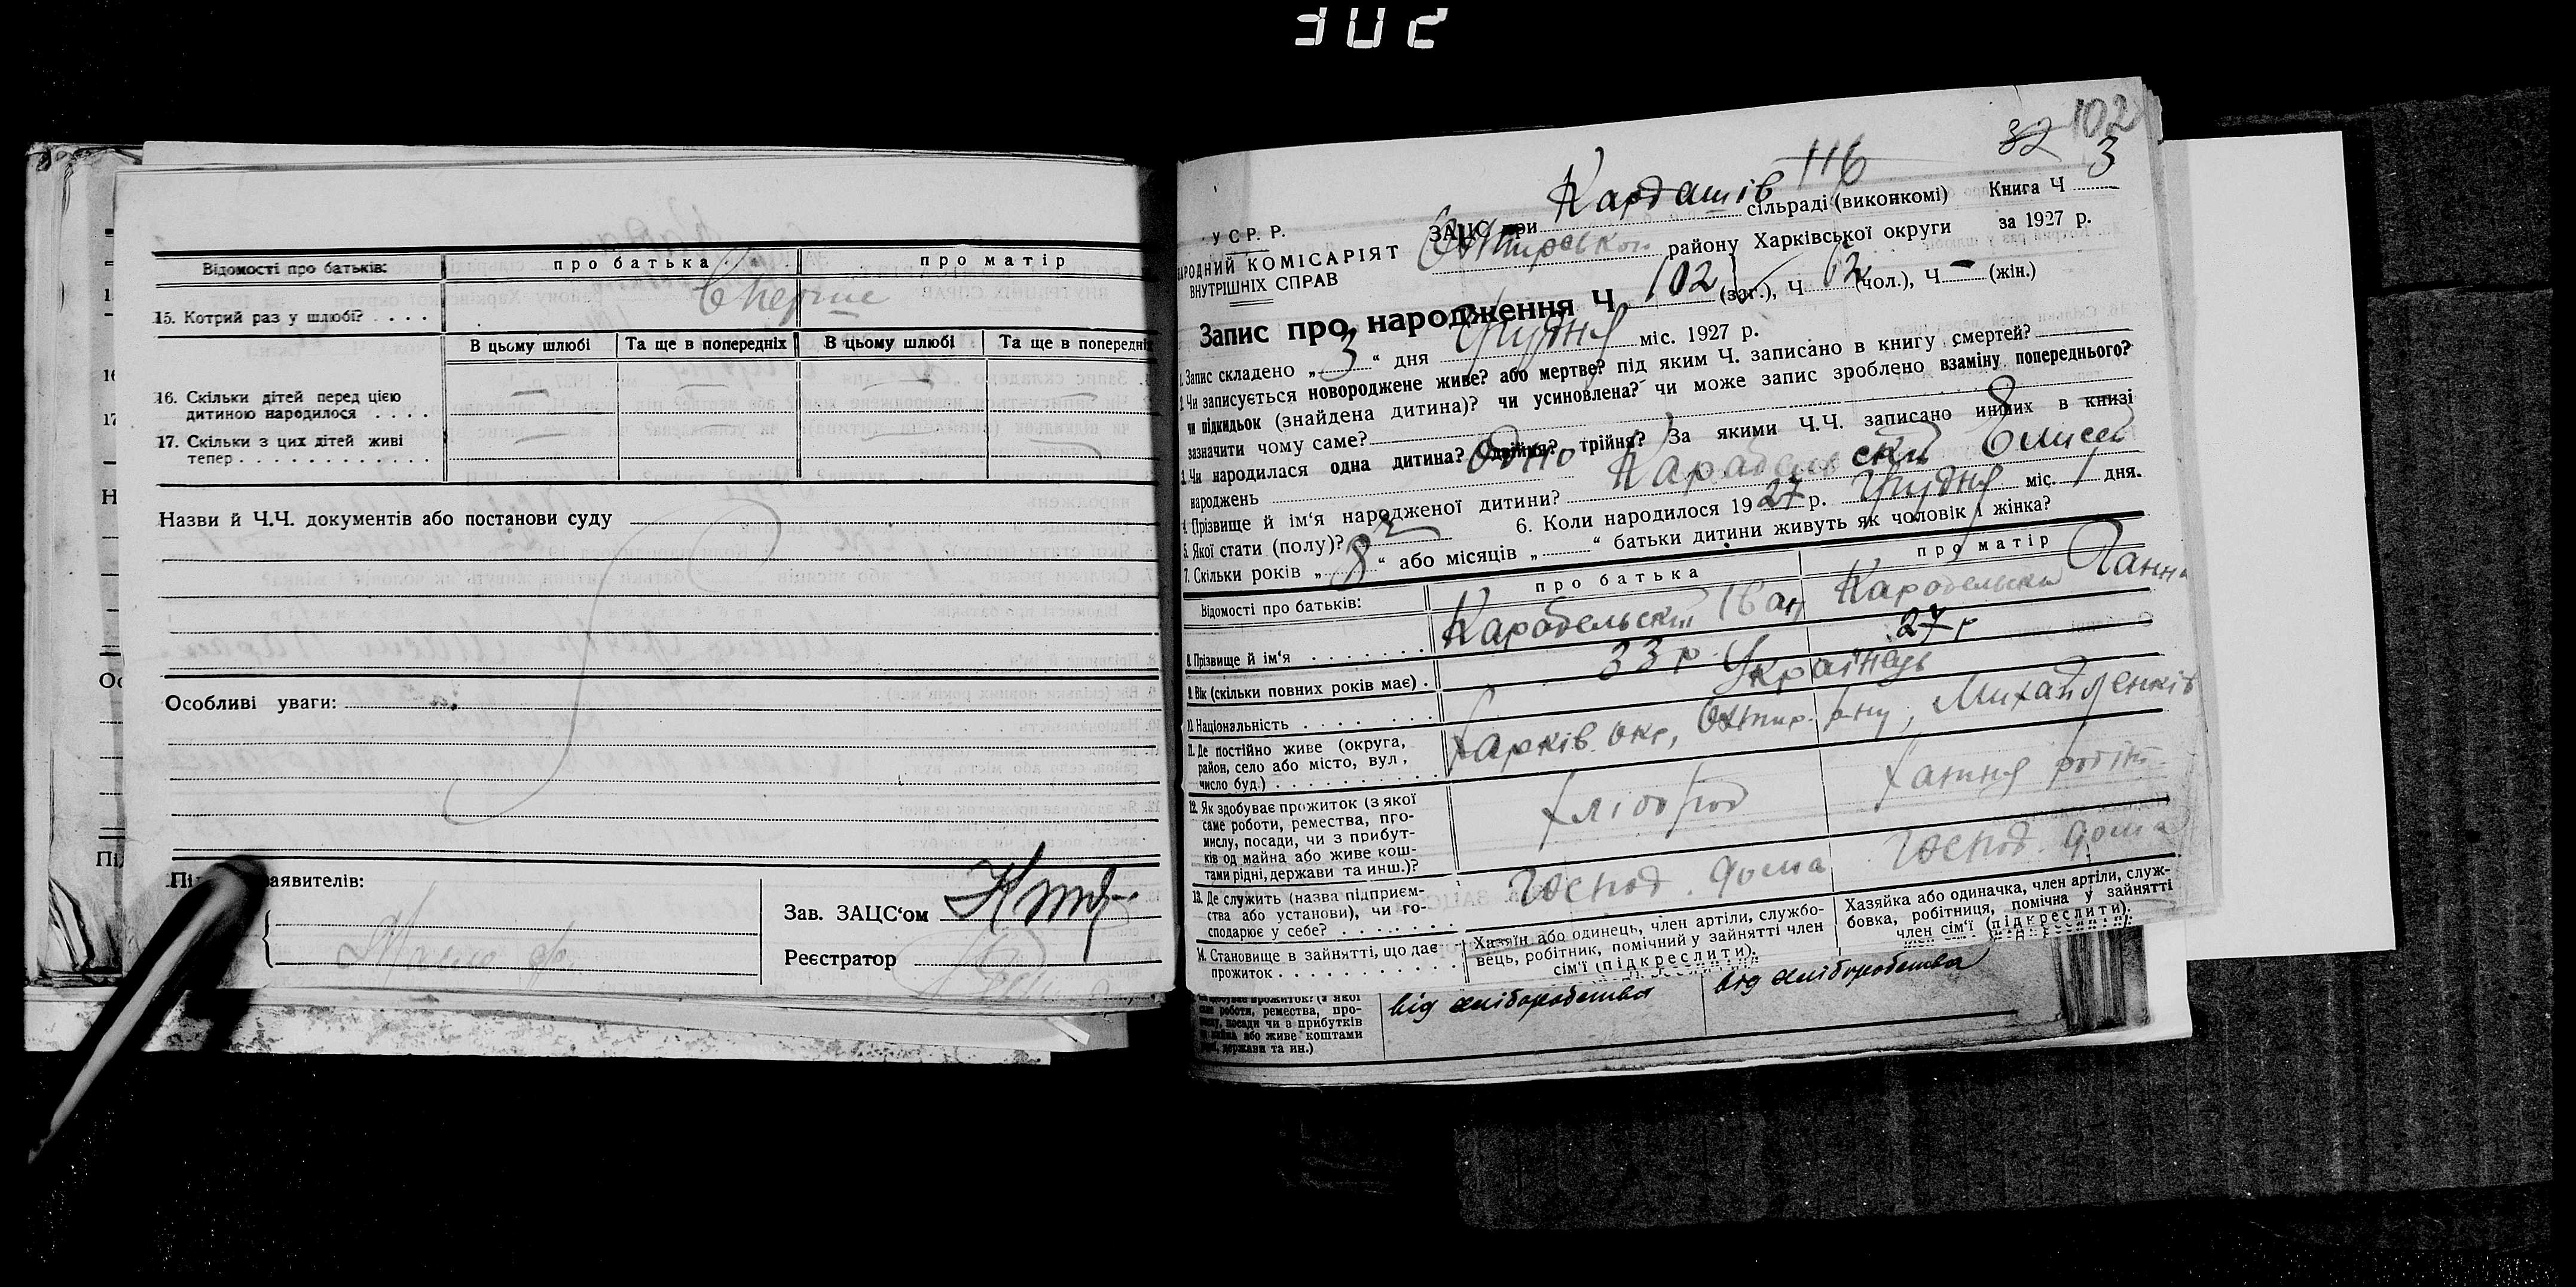 302
Відомості про батьків: про батька про матір
15. Котрий раз у шлюбі? . . . . Вперше
В цьому шлюбі Та ще в попередніх В цьому шлюбі Та ще в попередніх
16. Скільки дітей перед цією
дитиною народилося . . . . — — — —
17. Скільки з цих дітей живі
тепер . . . . . . . . . . . . . — — —
Назви й Ч.Ч. документів або постанови суду
Особливі уваги:
аявителів:
Зав. ЗАЦС‘ом
Реєстратор
32 102
116
У С Р. Р. ЗАЦС при Кардашів сільраді (виконкомі) Книга Ч 3
НАРОДНИЙ КОМІСАРІЯТ Охтирськог району Харківської округи за 1927 р.
ВНУТРІШНІХ СПРАВ
Запис про народження Ч 102 (заг.), Ч 62 (чол.), Ч — (жін.)
1. Запис складено „ 3 “ дня Грудня міс. 1927 р.
2. Чи записується новороджене живе? або мертве? під яким Ч. записано в книгу смертей?
чи підкидьок (знайдена дитина)? чи усиновлена? чи може запис зроблено взаміну попереднього?
зазначити чому саме?
3. Чи народилася одна дитина? двійня? трійня? За якими Ч.Ч. записано инших в книзі
народжень Одно
4. Прізвище й ім‘я народженої дитини? Карабельский Елисей
5. Якої стати (полу)? ч 6. Коли народилося 1927 р. Грудня міс. 1 дня.
7. Скільки років „ 8 “ або місяців „ “ батьки дитини живуть як чоловік і жінка?
Відомості про батьків: про батька про матір
8. Прізвище й ім‘я . . . . . . . Карабельский Іван Карабельська Ганна
9. Вік (скільки повних років має) . 33 р. 27 р
10. Національність . . . . . . . Українець
11. Де постійно живе (округа,
район, село або місто, вул.,
число буд.) . . . . . . . . . Харків. окр, Охтир. рну, Михайленків
12. Як здобуває прожиток (з якої
саме роботи, ремества, про-
мислу, посади, чи з прибут-
ків од майна або живе кош-
тами рідні, держави та инш.)? Хлібороб Хатня робіт.
13. Де служить (назва підприєм-
ства або установи), чи го-
сподарює у себе? . . . . . . . Господ. дома Господ. дома
14. Становище в зайнятті, що дає
прожиток . . . . . . . . . . . .
Хазяїн або одинець, член артіли, службо-
вець, робітник, помічний у зайнятті член
сім‘ї (підкреслити).
Хазяйка або одиначка, член артіли, служ-
бовка, робітниця, помічна у зайнятті
член сім‘ї (підкреслити).
прожиток? (з якої
роботи, ремества, про-
посади чи з прибутків
або живе коштами
держави та ин.)
від хліборобства від хліборобства